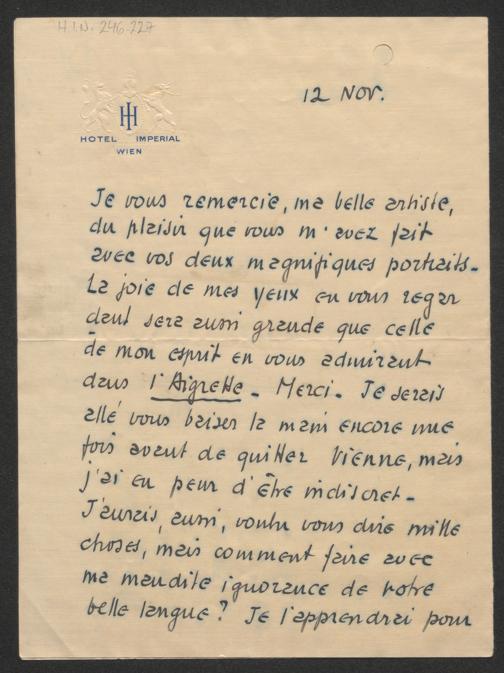 H.I.N. 246.227
12 NOV.
HI
HOTEL IMPERIAL
WIEN
Je vous remercie, ma belle artiste,
du plaisir que vous m'avez fait
avec vos deux magnifiques portraits.
La joie de mes yeux en vous regar
dant sera aussi grande que celle
de mon esprit en vous admirant
dans l'Aigrette. Merci. Je serais
allé vous baiser la main encore une
fois avant de quitter Vienne, mais
j'ai eu peur d'être indiscret.
J'aurais, aussi, voulu vous dire mille
choses, mais comment faire avec
ma maudite ignorance de votre
belle langue? Je l'apprendrai pour